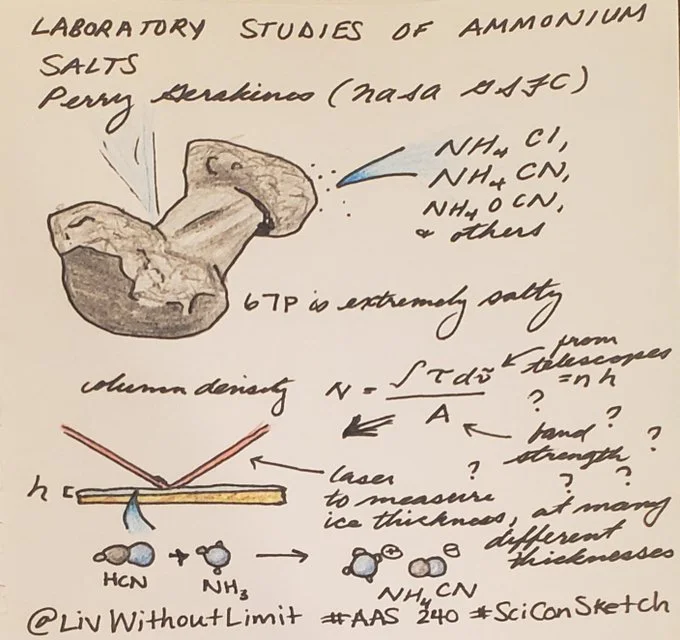 LABORATORY STUDIES OF AMMONIUM
SALTS
Perry Gerakines (NASA GSFC)
NH₄ Cl,
NH₄ CN,
NH₄ O CN,
& others
67P is extremely salty
column density
N = ∫ τ dν̃ / A
from
telescopes
= n h
?
?
?
band
strength
?
?
?
h
laser
to measure
ice thickness, at many
different
thicknesses
HCN + NH₃ → NH₄ CN
⊕ ⊖
@LivWithoutLimit #AAS 240 #SciConSketch